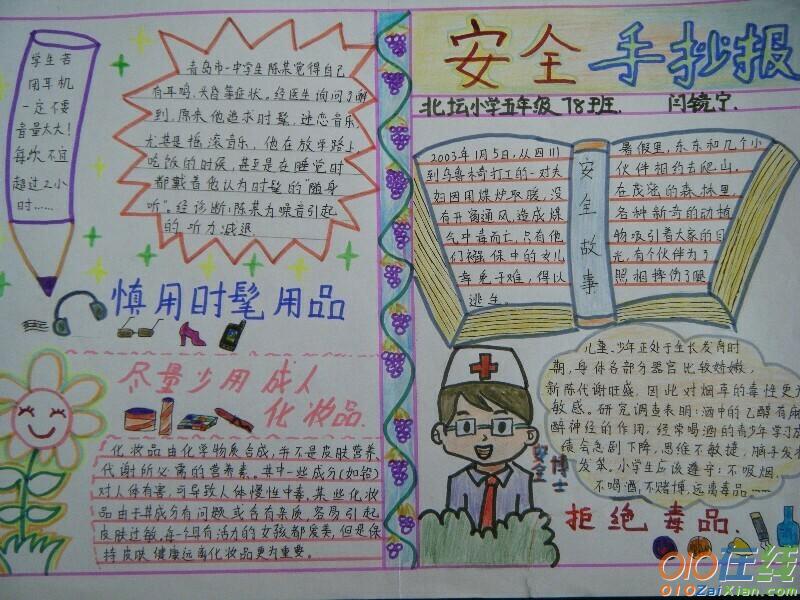 安全手抄报
北坛小学五年级78班. 闫镜宁.
学生若
用耳机
一定不要
音量太大!
每次不宜
超过2小
时……
青岛市一中学生陈某觉得自己
有耳鸣、头昏等症状。经医生询问了解
到,原来他追求时髦,迷恋音乐,
尤其是摇滚音乐,他在放学路上
吃饭的时候,甚至是在睡觉时
都戴着他认为时髦的"随身
听"。经诊断:陈某为噪音引起
的听力减退.
慎用时髦用品
尽量少用成人
化妆品.
化妆品由化学物质合成,并不是皮肤营养
代谢所必需的营养素。其中一些成分(如铅)
对人体有害,可导致人体慢性中毒。某些化妆
品由于其成分有问题或含有杂质,容易引起
皮肤过敏。每一个具有活力的女孩都爱美,但是保
持皮肤健康远离化妆品更为重要。
2003年1月5日,从四川
到乌鲁木奇打工的一对夫
妇因用煤炉取暖,没
有开窗通风,造成煤
气中毒而亡,只有他
们襁保中的女儿
幸免于难,得以
逃生。
安全故事
暑假里,东东和几个小
伙伴相约去爬山。
在茂密的森林里,
各种新奇的动植
物吸引着大家的目
光,有个伙伴为了
照相摔伤了腿
儿童、少年正处于生长发育时
期,身体各部分器官比较娇嫩,
新陈代谢旺盛,因此对烟草的毒性更为
敏感。研究调查表明:酒中的乙醇有麻
醉神经的作用,经常喝酒的青少年学习成
绩会急剧下降,思维不敏捷,脑子发木
发笨。小学生应该遵守:不吸烟、
不喝酒,不赌博,远离毒品……
安全博士
拒绝毒品
010在线
010ZaiXian.com